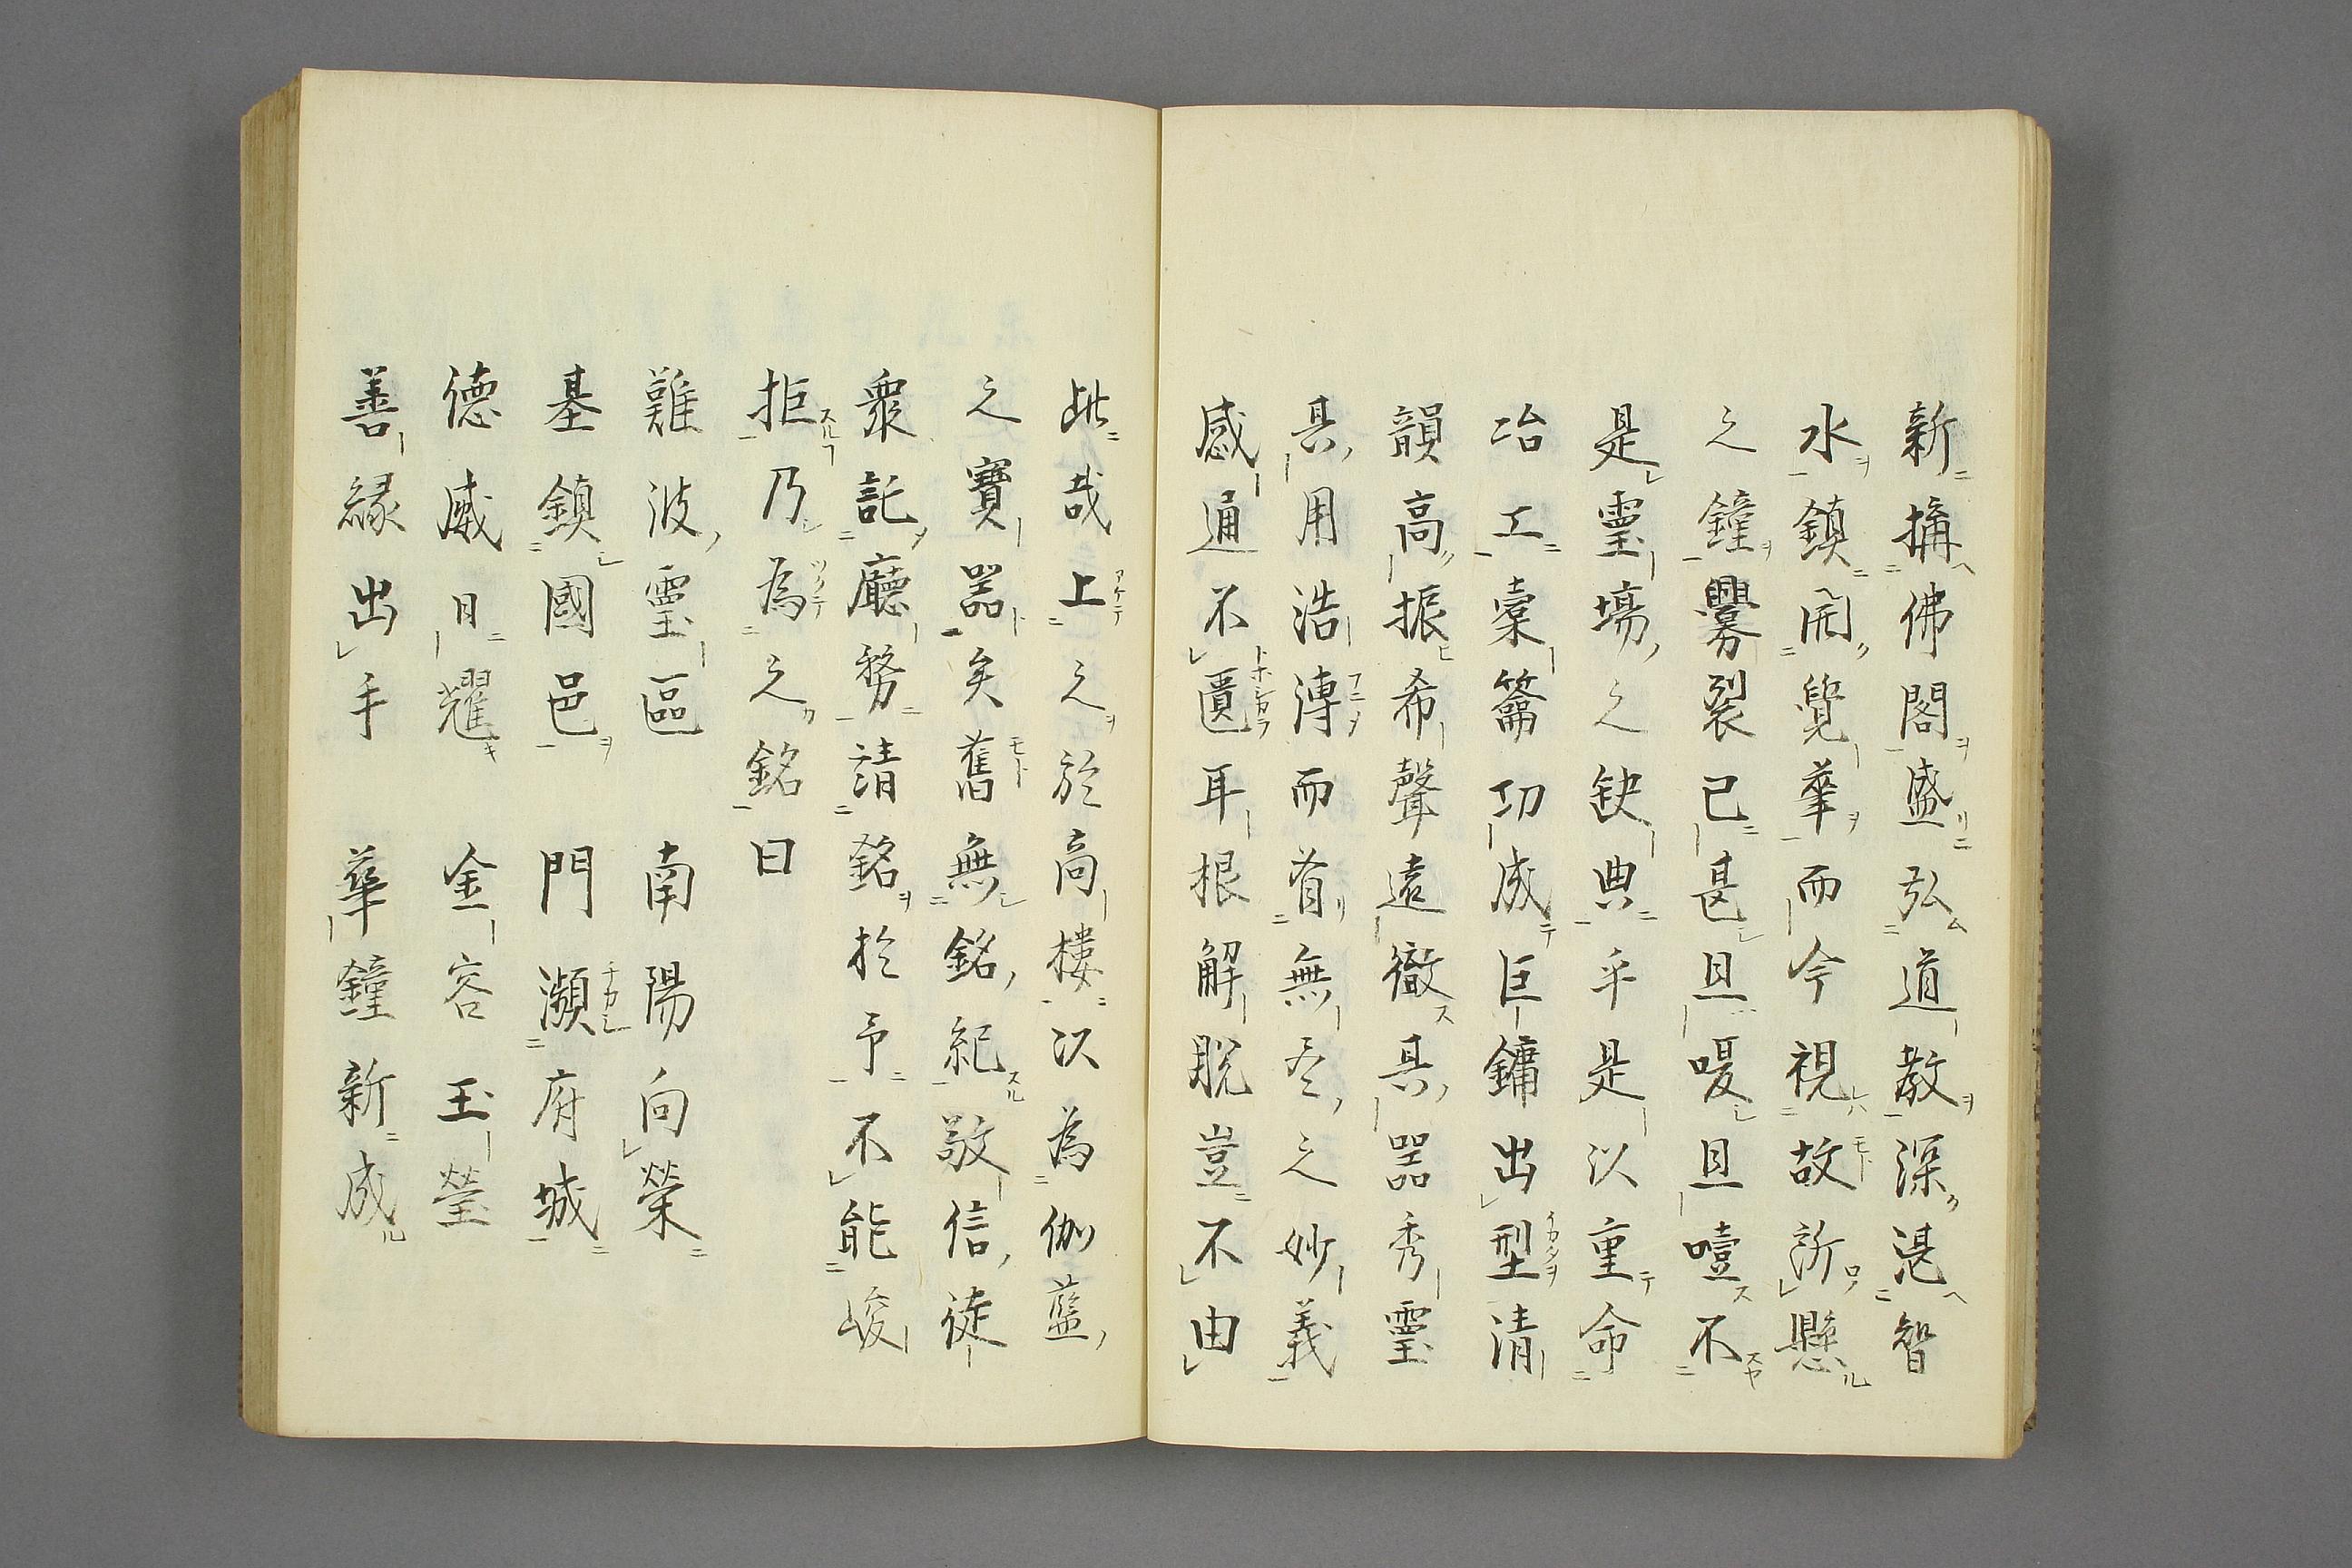 新搆佛閣盛弘道教深湛智
水鎮開覺華而今視故所懸
之鐘釁裂已甚且嗄且噎不
是靈場之缺典乎是以重命
冶工橐籥功成巨鏞出型清
韻高振希聲遠徹具器秀靈
具用浩溥而有無盡之妙義
感通不匱耳根解脱豈不由
此哉上之於高樓以為伽藍
之寶器矣舊無銘紀敬信徒
衆託廳務請銘於予不能峻
拒乃為之銘曰
難波靈區 南陽向榮
基鎮國邑 門瀕府城
德威日耀 金容玉瑩
善緣出手 華鐘新成